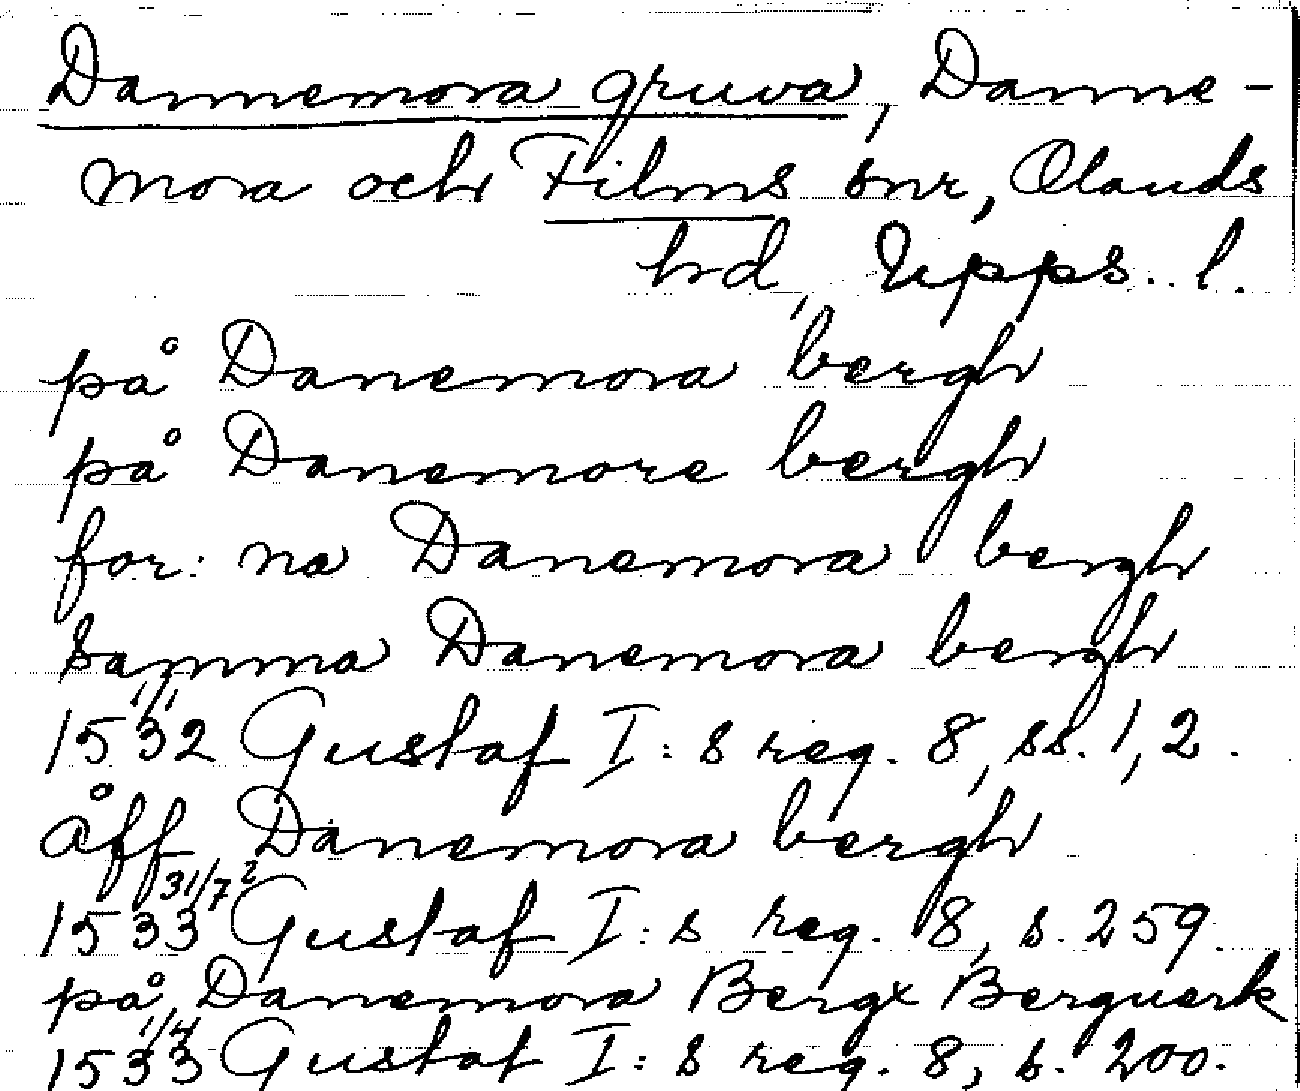 Dannemora gruva, Danne-
mora och Films snr, Olands
hd, Upps. l.
på Danemora bergh
på Danemore bergh
for: na Danemora bergh
samma Danemora bergh
1/1
1532 Gustaf I: s reg. 8, ss. 1, 2.
åff Danemora bergh
31/7 ?
1533 Gustaf I: s reg. 8, s. 259.
på Danemora Bergx Berguerk
1/4
1533 Gustaf I: s reg. 8, s. 200.